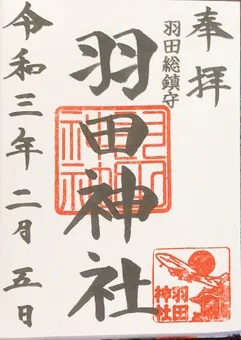 奉拝
羽田総鎮守
羽田神社
令和三年二月五日
羽田
神社